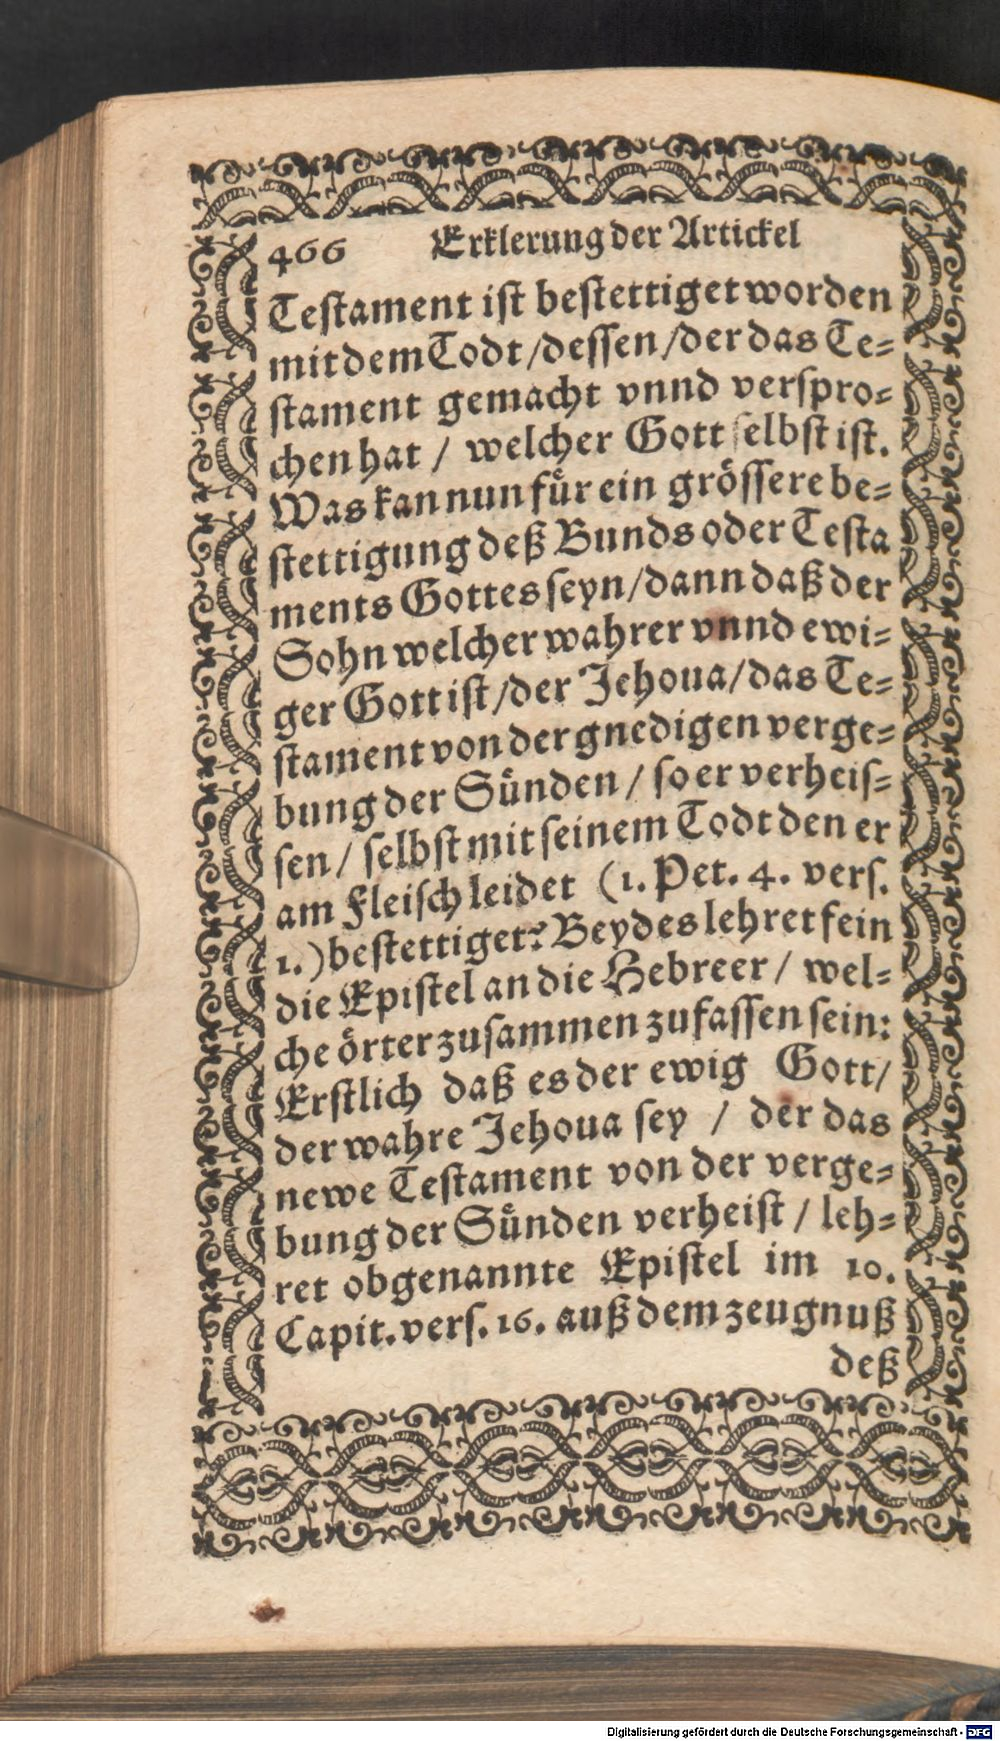 466 Erklerung der Artickel
Testament ist bestettiget worden
mit dem Todt / dessen / der das Te⸗
stament gemacht vnnd verspro⸗
chen hat / welcher Gott selbst ist.
Was kan nun fuͤr ein groͤssere be⸗
stettigung deß Bunds oder Testa
ments Gottes seyn / dann daß der
Sohn welcher wahrer vnnd ewi⸗
ger Gott ist / der Jehoua / das Te⸗
stament von der gnedigen verge⸗
bung der Suͤnden / so er verheis⸗
sen / selbst mit seinem Todt den er
am Fleisch leidet (1. Pet. 4. vers.
1.) bestettiget? Beydes lehret fein
die Epistel an die Hebreer / wel⸗
che oͤrter zusammen zufassen sein:
Erstlich daß es der ewig Gott /
der wahre Jehoua sey / der das
newe Testament von der verge⸗
bung der Suͤnden verheist / leh⸗
ret obgenannte Epistel im 10.
Capit. vers. 16. auß dem zeugnuß
deß
Digitalisierung gefördert durch die Deutsche Forschungsgemeinschaft - DFG